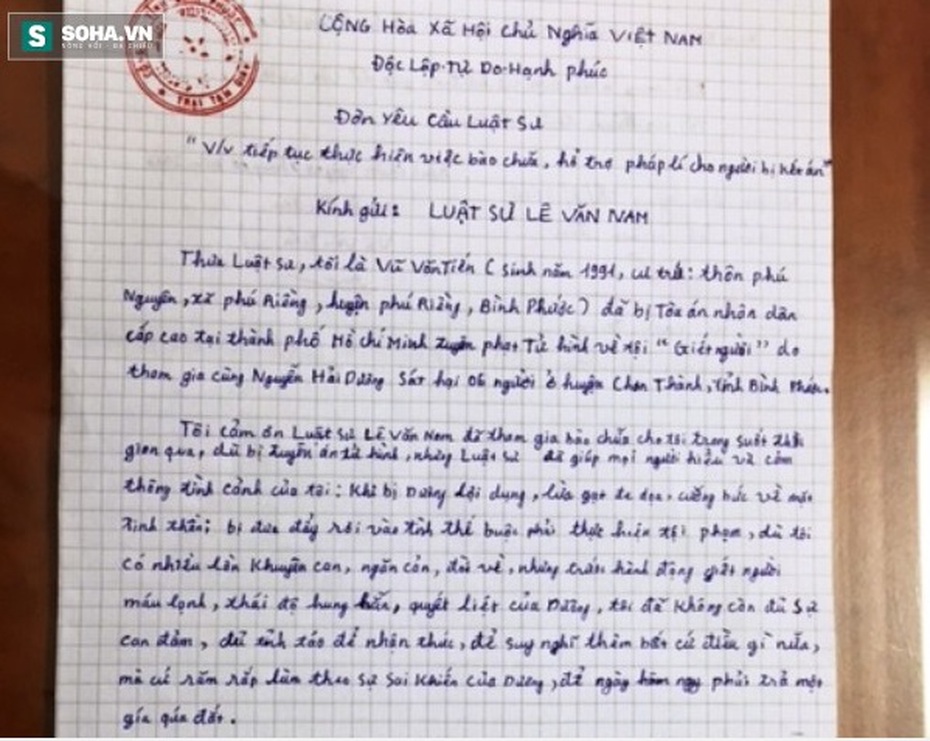 SOHA.VN
TRẠI TẠM GIAM
CỘNG HÒA XÃ HỘI CHỦ NGHĨA VIỆT NAM
Độc Lập-Tự Do-Hạnh phúc
Đơn Yêu Cầu Luật Sư
"V/v tiếp tục thực hiện việc bào chữa, hỗ trợ pháp lí cho người bị kết án"
Kính gửi: LUẬT SƯ LÊ VĂN NAM
Thưa Luật sư, tôi là Vũ Văn Tiến ( sinh năm 1991, cư trú: thôn phú
Nguyên, xã phú Riềng, huyện phú Riềng, Bình Phước) đã bị Tòa án nhân dân
cấp cao tại thành phố Hồ Chí Minh tuyên phạt Tử hình về tội "Giết người" do
tham gia cùng Nguyễn Hải Dương sát hại 06 người ở huyện Chơn Thành, tỉnh Bình Phước.
Tôi cảm ơn Luật sư Lê Văn Nam đã tham gia bào chữa cho tôi trong suốt thời
gian qua, dù bị tuyên án tử hình, nhưng Luật sư đã giúp mọi người hiểu và cảm
thông tình cảnh của tôi: Khi bị Dương lợi dụng, lừa gạt đe dọa, cưỡng bức về mặt
tinh thần; bị đưa đẩy rơi vào tình thế buộc phải thực hiện tội phạm, dù tôi
có nhiều lần khuyên can, ngăn cản, đòi về, nhưng trước hành động giết người
máu lạnh, thái độ hung hãn, quyết liệt của Dương, tôi đã không còn đủ sự
can đảm, đủ tỉnh táo để nhận thức, để suy nghĩ thêm bất cứ điều gì nữa,
mà cứ răm rắp làm theo sự sai khiến của Dương, để ngày hôm nay phải trả một
gía qúa đắt.